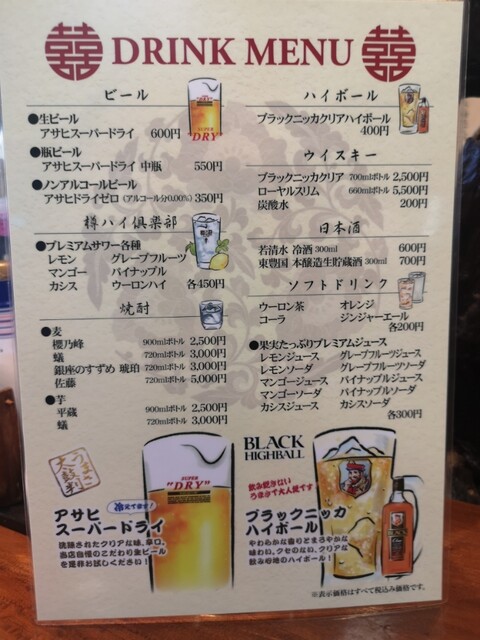 囍 DRINK MENU 囍
ビール
●生ビール
アサヒスーパードライ 600円
●瓶ビール
アサヒスーパードライ 中瓶 550円
●ノンアルコールビール
アサヒドライゼロ (アルコール分0.00%) 350円
SUPER
DRY
樽ハイ倶楽部
●プレミアムサワー各種
レモン グレープフルーツ
マンゴー パイナップル
カシス ウーロンハイ 各450円
焼酎
●麦
櫻乃峰 900mlボトル 2,500円
蟻 720mlボトル 3,000円
銀座のすずめ 琥珀 720mlボトル 3,000円
佐藤 720mlボトル 5,000円
●芋
平蔵 900mlボトル 2,500円
蟻 720mlボトル 3,000円
ハイボール
ブラックニッカクリアハイボール
400円
ウイスキー
ブラックニッカクリア 700mlボトル 2,500円
ローヤルスリム 660mlボトル 5,500円
炭酸水 200円
日本酒
若清水 冷酒 300ml 600円
東豊国 本醸造生貯蔵酒 300ml 700円
ソフトドリンク
ウーロン茶 オレンジ
コーラ ジンジャーエール
各200円
●果実たっぷりプレミアムジュース
レモンジュース グレープフルーツジュース
レモンソーダ グレープフルーツソーダ
マンゴージュース パイナップルジュース
マンゴーソーダ パイナップルソーダ
カシスジュース カシスソーダ
各300円
うまさ
太鼓判
SUPER
"DRY"
アサヒ
スーパードライ
洗練されたクリアな味、辛口。
当店自慢のこだわり生ビール
を是非お試しください!
BLACK
HIGHBALL
飲み飽きない
うまさで大人気です
ブラックニッカ
ハイボール
やわらかな香りとまろやかな
味わい、クセのない、クリアな
飲み心地のハイボール!
※表示価格はすべて税込み価格です。